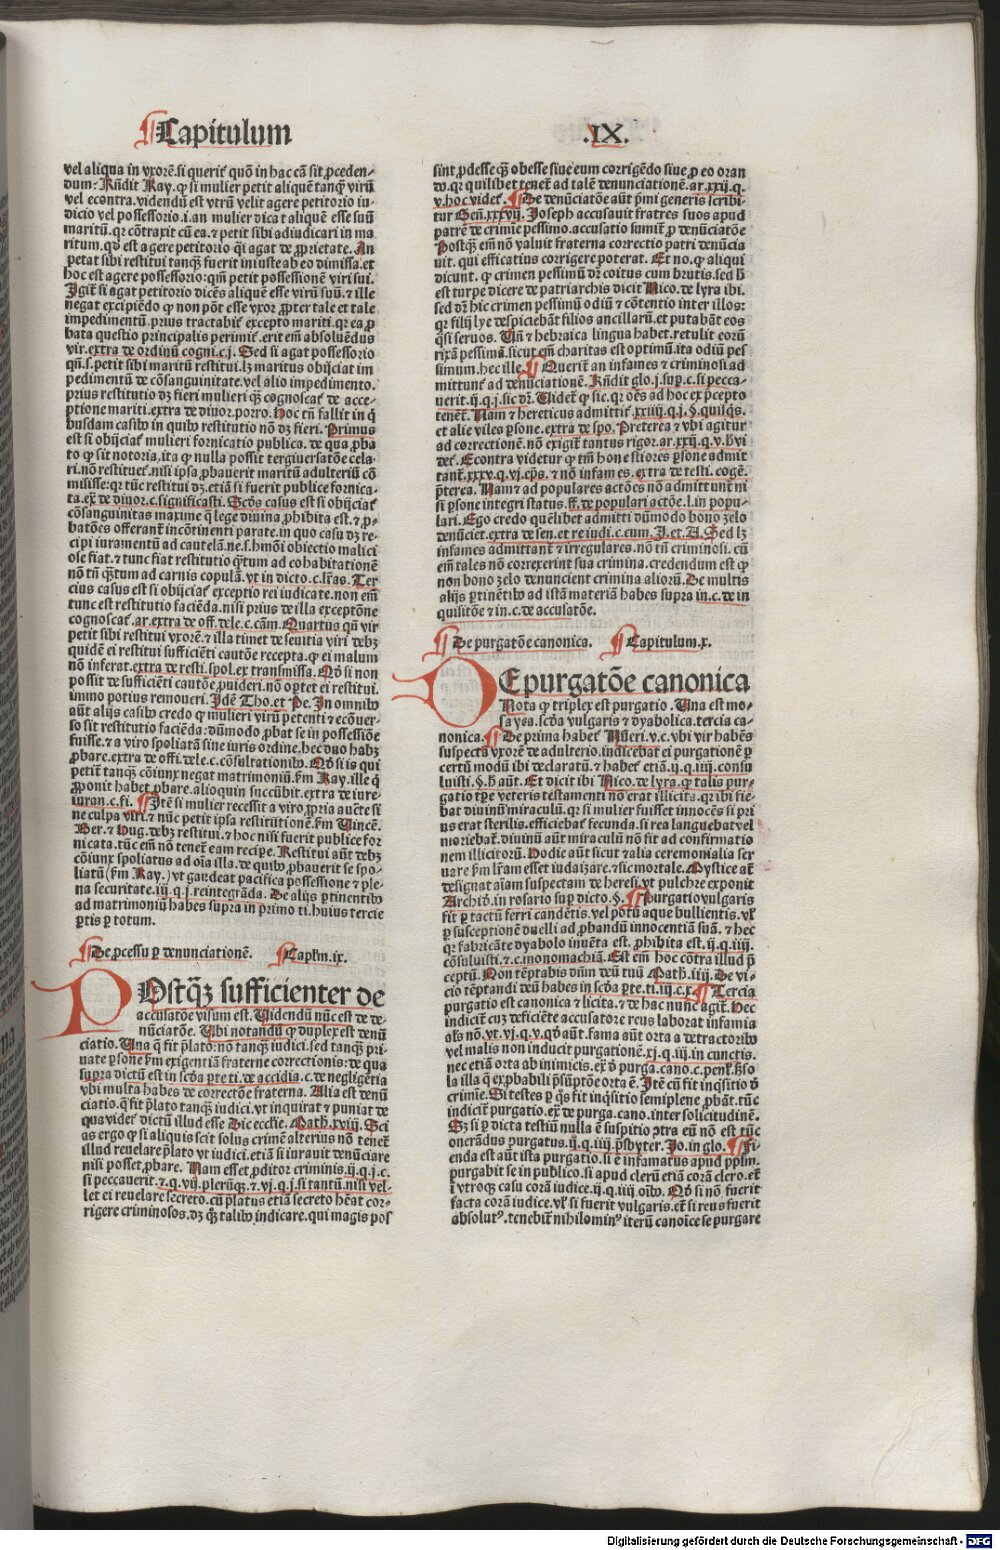 Capitulum
.IX.
vel aliqua in vxorē. si querit̄ quō in hac cā sit ꝓceden-
dum: Rn̄dit Ray. ꝙ si mulier petit aliquē tanꝙ̄ virū
vel econtra. videndū est vtrū velit agere petitorio iu-
dicio vel possessorio. i. an mulier dicat aliquē esse suū
maritū. qr cōtraxit cū ea. ⁊ petit sibi adiudicari in ma
ritum. qd̓ est agere petitorio q̄i agat de ꝓprietate. An
petat sibi restitui tanꝙ̄ fuerit iniuste ab eo dimissa. et
hoc est agere possessorio: qm̄ petit possessionē viri sui.
Igit̄ si agat petitorio dicēs aliquē esse virū suū. ⁊ ille
negat excipiēdo ꝙ non pōt esse vxor ꝓpter tale et tale
impedimentū. prius tractabit̄ exceptio mariti. qr ea ꝓ
bata questio principalis perimit̄. erit em̄ absoluēdus
vir. extra de ordinū cogni. c. j. Sed si agat possessorio
qn̄. s. petit sibi maritū restitui. lꝫ maritus obijciat im
pedimentū de cōsanguinitate. vel alio impedimento.
prius restitutio dꝫ fieri mulieri ꝙ̄ cognoscat̄ de acce-
ptione mariti. extra de diuor. porro. Hoc tn̄ fallit in q̄
busdam casibꝰ in quibꝰ restitutio nō dꝫ fieri. Primus
est si obijciat̄ mulieri fornicatio publica. de qua ꝓba
to ꝙ sit notoria, ita ꝙ nulla possit tergiuersatōe cela-
ri. nō restituet̄. nisi ipsa ꝓbauerit maritū adulteriū cō
misisse: qr tūc restitui dꝫ. etiā si fuerit publice fornica-
ta. ex̄ de diuor. c. significasti. Scd̓s casus est si obijciat̄
cōsanguinitas maxime ꝙ̄ lege diuina ꝓhibita est. ⁊ ꝓ-
batōes offerant̄ incōtinenti parate. in quo casu dꝫ re-
cipi iuramentū ad cautelā. ne. s. hmōi obiectio malici
ose fiat. ⁊ tunc fiat restitutio q̄tum ad cohabitationē
nō tn̄ q̄tum ad carnis copulā. vt in dicto. c. lr̄as. Ter
cius casus est si obijciat̄ exceptio rei iudicate. non em̄
tunc est restitutio faciēda. nisi prius de illa exceptōne
cognoscat̄. ar. extra de off. dele. c. cām. Quartus qn̄ vir
petit sibi restitui vxorē. ⁊ illa timet de seuitia viri debꝫ
quidē ei restitui sufficiēti cautōe recepta. ꝙ ei malum
nō inferat. extra de resti. spol. ex transmissa. Qd̓ si non
possit de sufficiēti cautōe ꝓuideri. nō optet ei restitui.
immo potius remoueri. Idē Tho. et Pe. In omnibꝰ
aūt alijs casibꝰ credo ꝙ mulieri virū petenti ⁊ ecōuer-
so sit restitutio faciēda: dūmodo ꝓbat se in possessiōe
fuisse. ⁊ a viro spoliatā sine iuris ordine. hec duo habꝫ
ꝓbare. extra de offi. dele. c. cōsultationibꝰ. Qd̓ si is qui
petit̄ tanꝙ̄ cōiunx negat matrimoniū. hm̄ Ray. ille ꝙ̄
ꝓponit habet ꝓbare. alioquin succūbit. extra de iure-
iuran. c. fi. Itē si mulier recessit a viro ꝓpria aucte si
ne culpa viri. ⁊ nūc petit ipsa restitutionē. hm̄ Vincē.
Ber. ⁊ Hug. debꝫ restitui. ⁊ hoc nisi fuerit publice for
nicata. tūc em̄ nō tenet̄ eam recipe. Restitui aūt debꝫ
cōiunx spoliatus ad oīa illa. de quibꝰ ꝓbauerit se spo-
liatū (hm̄ Ray.) vt gaudeat pacifica possessione ⁊ ple-
na securitate. iij. q. j. reintegrāda. De alijs ꝑtinentibꝰ
ad matrimoniū habes supra in primo ti. huius tercie
ꝑtis ꝑ totum.
De ꝓcessu ꝑ denunciationē. Capl̓m. ix.
POstꝙ̄ sufficienter de
accusatōe visum est. Videndū nūc est de de-
nūciatōe. Vbi notandū ꝙ duplex est denū
ciatio. Vna q̄ fit p̄lato: nō tanꝙ̄ iudici. sed tanꝙ̄ pri-
uate ꝑsone hm̄ exigentiā fraterne correctionis: de qua
supra dictū est in scd̓a ꝑte ti. de accidia. c. de negligētia
vbi multa habes de correctōe fraterna. Alia est denū
ciatio. q̄ fit p̄lato tanꝙ̄ iudici. vt inquirat ⁊ puniat de
qua videt̄ dictū illud esse Dic eccl̓ie. Math. xviij. Sci
as ergo ꝙ si aliquis scit solus crimē alterius nō tenet̄
illud reuelare p̄lato vt iudici. etiā si iurauit denūciare
nisi posset ꝓbare. Nam esset ꝓditor criminis. ij. q. j. c.
si peccauerit. ⁊. q. vij. plerūꝙ̄. ⁊. vj. q. j. si tantū. nisi vel-
let ei reuelare secreto. cū platus etiā secreto hēat cor-
rigere criminosos. dꝫ ꝙ̄ talibꝰ indicare. qui magis pos
sint ꝓdesse ꝙ̄ obesse siue eum corrigēdo siue ꝓ eo oran
do. qr quilibet tenet̄ ad talē denunciationē. ar. xxij. q.
v. hoc videt̄. De denūciatōe aūt p̄mi generis scribi-
tur Gen̄. xxxvij. Joseph accusauit fratres suos apud
patrē de crimīe pessimo. accusatio sumit̄ ꝓ denūciatōe
Postꝙ̄ em̄ nō valuit fraterna correctio patri denūcia
uit. qui efficatius corrigere poterat. Et no. ꝙ aliqui
dicunt. ꝙ crimen pessimū dr̄ coitus cum brutis. sed h̄
est turpe dicere de patriarchis dicit Nico. de lyra ibi.
sed dr̄ hic crimen pessimū odiū ⁊ cōtentio inter illos:
qr filij lye despiciebāt filios ancillarū. et putabāt eos
q̄si seruos. Vn̄ ⁊ hebraica lingua habet. retulit eorū
rixā pessimā. sicut em̄ charitas est optimū. ita odiū pes
simum. hec ille. Querit̄ an infames ⁊ criminosi ad
mittunt̄ ad denūciationē. Rn̄dit glo. j. sup. c. si pecca-
uerit. ij. q. j. sic dr̄. Videt̄ ꝙ sic. qr oēs ad hoc ex p̄cepto
tenet̄. Nam ⁊ hereticus admittit̄. xxiiij. q. j. §. quisꝙ̄s.
et alie viles ꝑsone. extra de spo. Preterea ⁊ vbi agitur
ad correctionē. nō exigit̄ tantus rigor. ar. xxij. q. v. h̄ vi
det̄. Econtra videtur ꝙ tm̄ honestiores ꝑsone admit
tant̄. xxxv. q. vj. ep̄s. ⁊ nō infames. extra de testi. coge.
p̄terea. Nam ⁊ ad populares actōes nō admittunt̄ ni
si ꝑsone integri status. ff. de populari actōe. l. in popu-
lari. Ego credo quēlibet admitti dūmodo bono zelo
denūciet. extra de sen. et re iudi. c. cum. I. et. A. Sed lꝫ
infames admittant̄ ⁊ irregulares. nō tn̄ criminosi. cū
em̄ tales nō correxerint sua crimina. credendum est ꝙ
non bono zelo denuncient crimina aliorū. De multis
alijs ꝑtinētibꝰ ad istā materiā habes supra in. c. de in
quisitōe ⁊ in. c. de accusatōe.
De purgatōe canonica. Capitulum. x.
DE purgatōe canonica
Nota ꝙ triplex est purgatio. Vna est mo-
sayca. scd̓a vulgaris ⁊ dyabolica. tercia ca-
nonica. De prima habet̄ Nūeri. v. c. vbi vir habēs
suspectā vxorē de adulterio. indicebat ei purgationē ꝑ
certū modū ibi declaratū. ⁊ habet̄ etiā. ij. q. iiij. consu
luisti. §. h̄ aūt. Et dicit ibi Nico. de lyra. ꝙ talis pur-
gatio tꝑe veteris testamenti nō erat illicita. qr ibi fie-
bat diuinū miraculū. qr si mulier fuisset innocēs si pri
us erat sterilis. efficiebat̄ fecunda. si rea languebat vel
moriebat̄. diuinū aūt miraculū nō fit ad confirmatio
nem illicitorū. Hodie aūt sicut ⁊ alia ceremonialia ser
uare hm̄ lr̄am esset iudaizare. ⁊ sic mortale. Mystice at̄
designat aīam suspectam de heresi. vt pulchre exponit
Archid̓. in rosario sup dicto. §. Purgatio vulgaris
fit ꝑ tactū ferri candētis. vel potū aque bullientis. vl̓
ꝑ susceptionē duelli ad ꝓbandū innocentiā suā. ⁊ hec
qr fabricāte dyabolo inuēta est. ꝓhibita est. ij. q. iiij.
cōsuluisti. ⁊. c. monomachiā. Est em̄ hoc cōtra illud p̄
ceptū. Non tēptabis dn̄m deū tuū Math. iiij. De vi-
cio tēptandi deū habes in scd̓a ꝑte. ti. iij. c. x. Tercia
purgatio est canonica ⁊ licita. ⁊ de hac nunc agit̄. Hec
indicit̄ cuꝫ deficiēte accusatore reus laborat infamia
als̓ nō. vt. vj. q. v. qd̓ aūt. fama aūt orta a detractoribꝰ
vel malis non inducit purgationē. xj. q. iij. in cunctis.
nec etiā orta ab inimicis. ex̄ d̓ purga. cano. c. penl̓. h̄ so
la illa q̄ ex ꝓbabili p̄sūptōe orta ē. Itē cū fit inq̄sitio d̓
crimīe. Si testes ꝑ q̄s fit inq̄sitio semiplene ꝓbāt. tūc
indicit̄ purgatio. ex̄ de purga. cano. inter solicitudinē.
Sꝫ si ꝑ dicta testiū nulla ē suspitio ꝯtra eū nō est tūc
onerādus purgatus. ij. q. iiij. p̄sbyter. Io. in glo. Fi-
enda est aūt ista purgatio. si ē infamatus apud ppl̓m.
purgabit se in publico. si apud clerū etiā corā clero. et̄
ī vtroꝙ̄ casu corā iudice. ij. q. iiij oībꝰ. Qd̓ si nō fuerit
facta corā iudice. vl̓ si fuerit vulgaris. et̄ si reus fuerit
absolutꝰ. tenebit̄ nihilominꝰ iterū canoīce se purgare
Digitalisierung gefördert durch die Deutsche Forschungsgemeinschaft - DFG